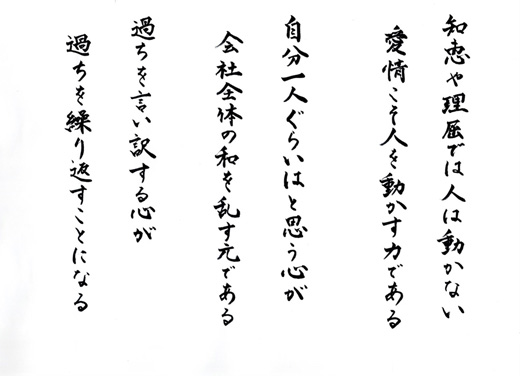 知恵や理屈では人は動かない
愛情こそ人を動かす力である
自分一人ぐらいはと思う心が
会社全体の和を乱す元である
過ちを言い訳する心が
過ちを繰り返すことになる